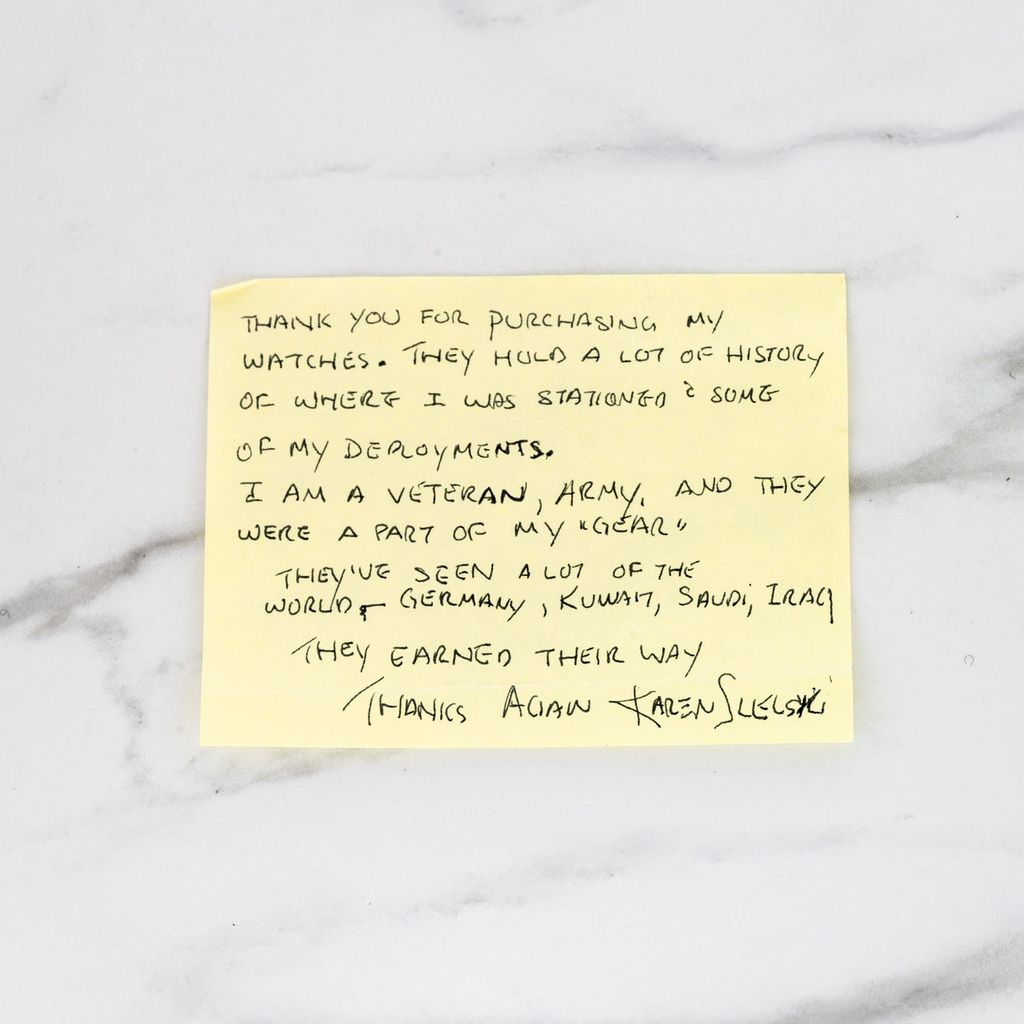 THANK YOU FOR PURCHASING MY
WATCHES. THEY HOLD A LOT OF HISTORY
OF WHERE I WAS STATIONED & SOME
OF MY DEPLOYMENTS.
I AM A VETERAN, ARMY. AND THEY
WERE A PART OF MY "GEAR"
THEY'VE SEEN A LOT OF THE
WORLD - GERMANY, KUWAIT, SAUDI, IRAQ
THEY EARNED THEIR WAY
THANKS AGAIN KAREN